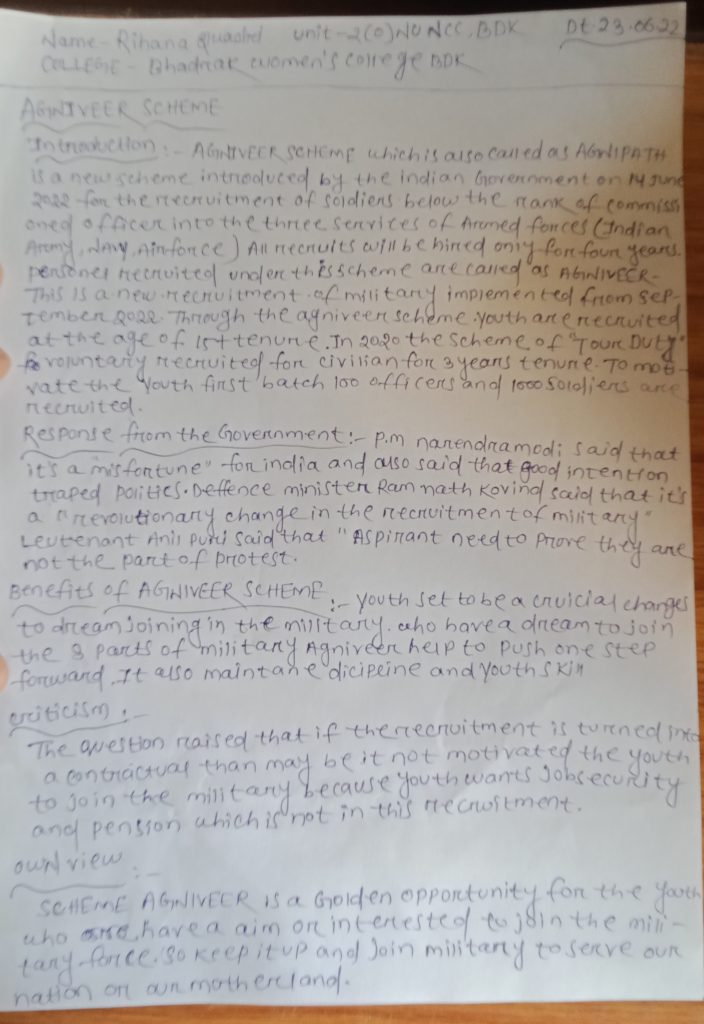 Name - Rihana Quadri unit - 2(O) NU NCC, BDK Dt. 23.06.22
COLLEGE - Bhadrak women's college BDK
AGNIVEER SCHEME
Introduction :- AGNIVEER SCHEME which is also called as AGNIPATH
is a new scheme introduced by the indian Government on 14 June
2022 for the recruitment of soldiers below the rank of commissi
oned officer into the three services of Armed forces (Indian
Army, NAVY, Airforce) All recruits will be hired only for four years.
personel recruited under this scheme are called as AGNIVEER-
This is a new recruitment of military implemented from Sep-
tember 2022. Through the agniveer scheme youth are recruited
at the age of 15+ tenure. In 2020 the scheme of "Tour Duty"
voluntary recruited for civilian for 3 years tenure. To moti-
vate the youth first batch 100 officers and 1000 Soldiers are
recruited.
Response from the Government :- P.m narendramodi said that
it's a misfortune" for india and also said that good intention
traped politics. Deffence minister Ram nath Kovind said that it's
a "revolutionary change in the recruitment of military"
Leutenant Anil Puri said that "Aspirant need to prove they are
not the part of protest.
Benefits of AGNIVEER SCHEME :- youth set to be a cruicial changes
to dream joining in the military. who have a dream to join
the 3 parts of military Agniveer help to push one step
forward. It also maintane dicipline and youth skill
criticism :-
The question raised that if the recruitment is turned into
a contractual than may be it not motivated the youth
to join the military because youth wants Job security
and pension which is not in this recruitment.
own view :-
SCHEME AGNIVEER is a Golden opportunity for the youth
who have a aim or interested to join the mili-
tary force. So keep it up and Join military to serve our
nation or our mothercland.